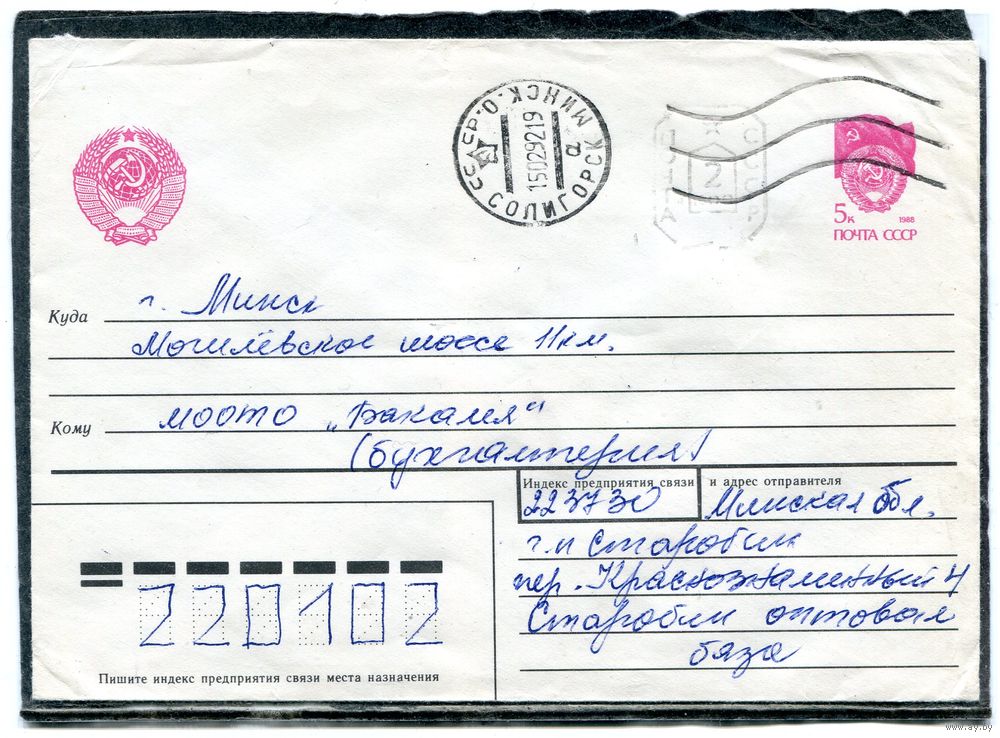 МИНСК. О.
СССР
15029219
а
СОЛИГОРСК
ПОЧТА СССР
2
5к
1988
ПОЧТА СССР
Куда г. Минск
Могилёвское шоссе 11 км.
Кому МООТО „Бакалея“
(бухгалтерия)
Индекс предприятия связи и адрес отправителя
223730 Минская обл.
г.п Старобин
пер. Краснознаменный 4
Старобин оптовая
база
220102
Пишите индекс предприятия связи места назначения
www.ay.by